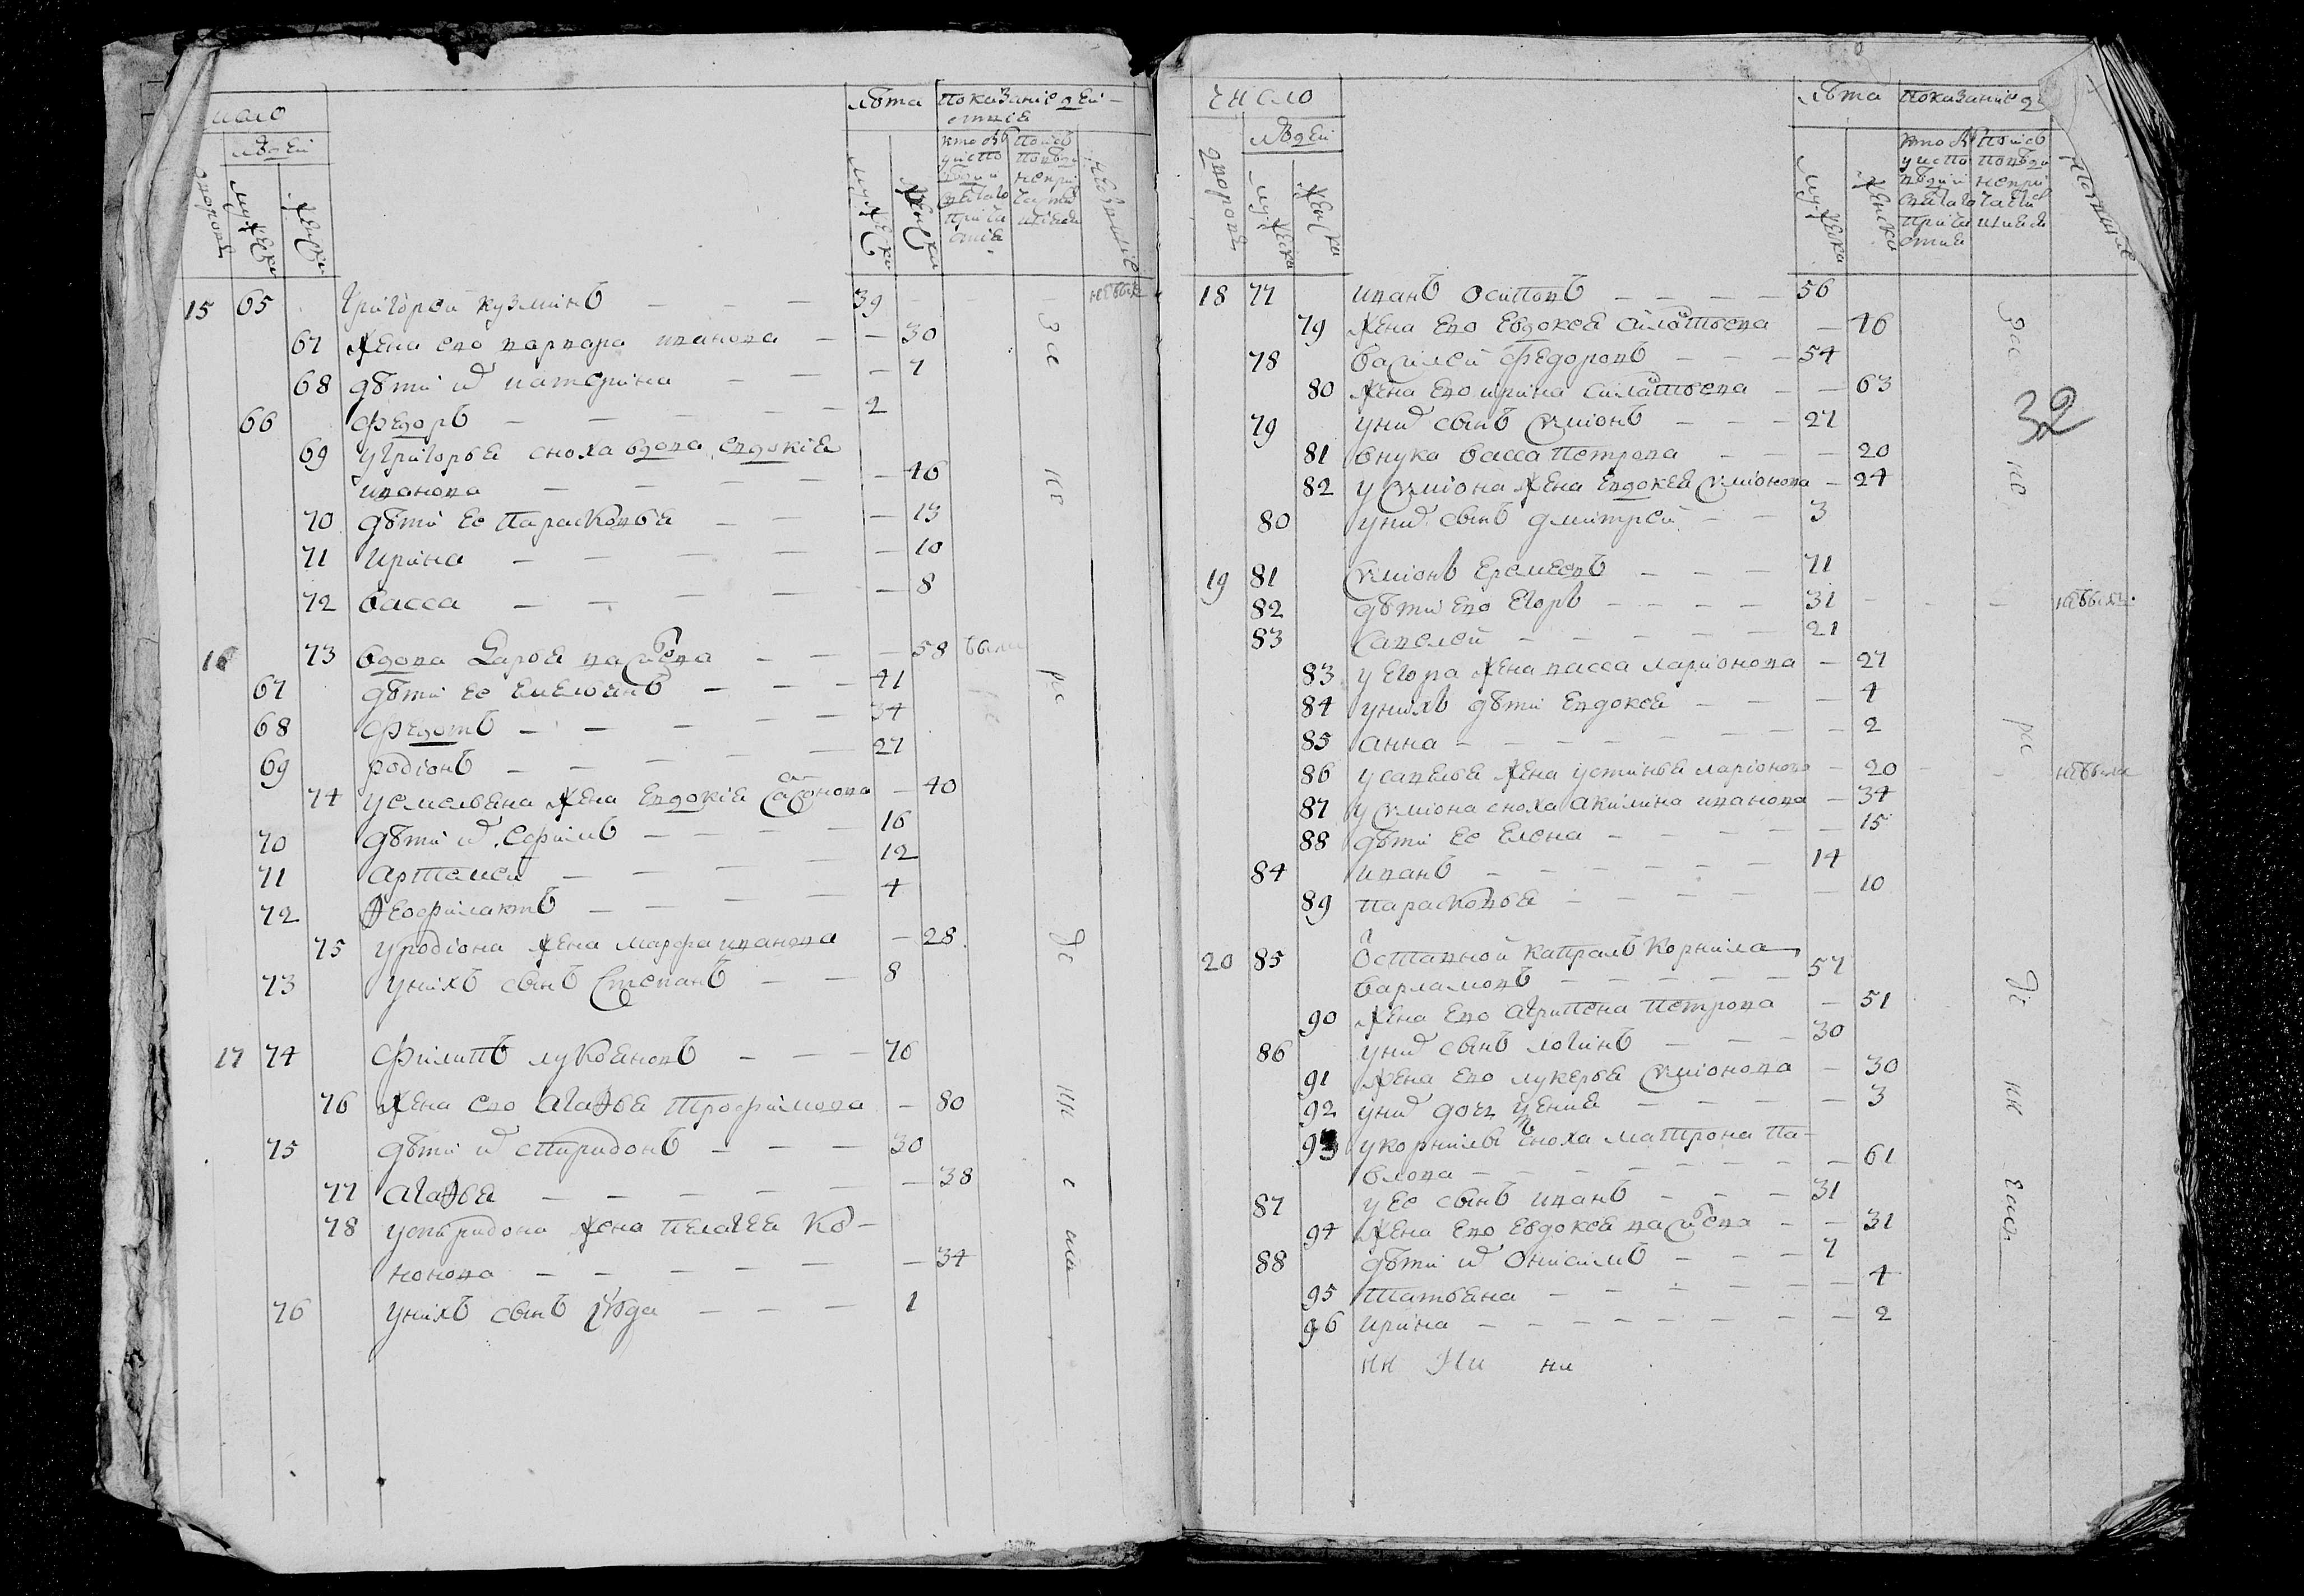 число
людей
дворовъ
мужеска
женска
лѣта
показаніе дей-
ствія
мужеска
женска
кто былъ
у испо
вѣди и
святаго
прича
стія
кто исповѣ
неприча
небывшіе
15 65 Григорей Кузминъ — — — 39 небылъ
67 жена ево варвара иванова — — 30
68 дѣти их катерина — — — 7
66 Федоръ — — — — — 2
69 у григорья сноха вдова евдокія
иванова — — — — — 46
70 дѣти ее парасковья — — — 13
71 Ирина — — — — — 10
72 васса — — — — — 8
16 73 вдова дарья васильева — — — 58 были
67 дѣти ее Емельянъ — — — 41
68 Федотъ — — — — — 34
69 родіонъ — — — — 27
74 у емельяна жена Евдокія сафонова — 40
70 дѣти их Ефимъ — — — — 16
71 артемей — — — — 12
72 Феофилактъ — — — — 4
75 у родіона жена марфа иванова — 28
73 у нихъ сынъ Степанъ — — 8
17 74 Филипъ лукьяновъ — — — 70
76 жена ево агафья трофимова — 80
75 дѣти их спиридонъ — — — 30
77 агафья — — — — — — 38
78 успиридона жена пелагея ко-
нонова — — — — — — 34
76 у нихъ сынъ іюда — — — 1
За не ра де ни е мъ
число
дворовъ
людей
мужеска
женска
лѣта
показаніе де
мужеска
женска
кто былъ
у испо
вѣди и
святаго
прича
стия
32
18 77 иванъ осиповъ — — — — 56
79 жена ево Евдокея силантьева — 46
78 василей федоровъ — — — 54
80 жена ево ирина силантьева — — 63
79 у них сынъ симіонъ — — — 27
81 внука васса петрова — — — 20
82 у симіона жена Евдокея симіонова — 24
80 у них сынъ дмитрей — — 3
19 81 симіонъ Еремеевъ — — — 71
82 дѣти ево Егоръ — — — — 31 — — — небылъ
83 савелей — — — — — 21
83 у Егора жена васса ларионова — 27
84 у нихъ дѣти Евдокея — — — 4
85 анна — — — — — — — 2
86 у савелья жена устинья ларіонова — 20 — — небыла
87 у симіона сноха акилина иванова — 34
88 дѣти ее Елена — — — — — 15
84 иванъ — — — — — — 14
89 парасковья — — — — — 10
20 85 отставной капралъ корнила
варламовъ — — — — — 57
90 жена ево агрипена петрова — 51
86 у них сынъ логинъ — — — 30
91 жена ево лукерья симіонова — 30
92 у них дочь — — — — 3
93 укорнилы сноха матрона па-
влова — — — — — — — — 61
87 у ее сынъ иванъ — — — 31
94 жена ево Евдокея васильева — — 31
88 дѣти их онисимъ — — — 7
95 татьяна — — — — — — 4
96 ирина — — — — — — — 2
За не ра де ни емъ